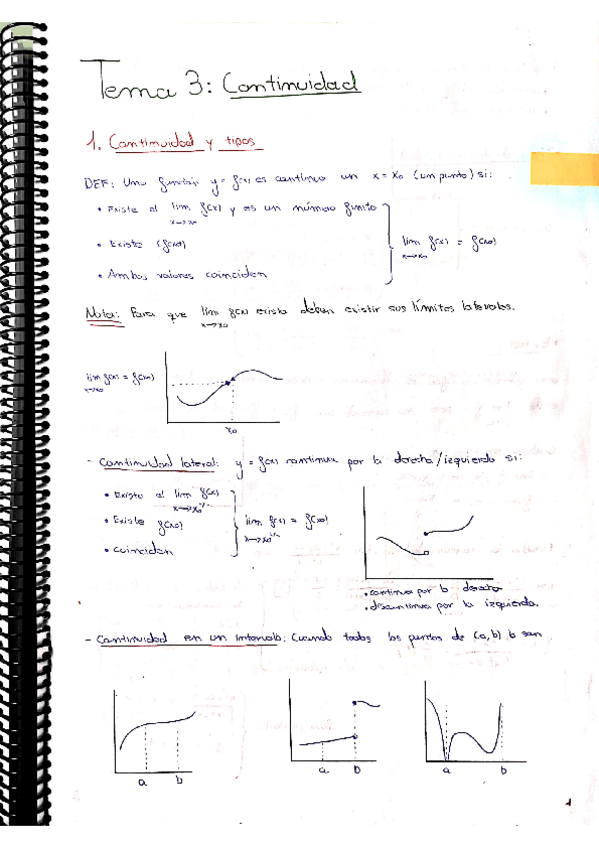 Tema 3: Continuidad
1. Continuidad y tipos
DEF: Una función y = f(x) es continua en x = x₀ (un punto) si:
• Existe el lim f(x) y es un número finito
x→x₀
• Existe f(x₀)
lim f(x) = f(x₀)
x→x₀
• Ambos valores coinciden
Nota: Para que lim f(x) exista deben existir sus límites laterales.
x→x₀
lim f(x) = f(x₀)
x→x₀
x₀
- Continuidad lateral: y = f(x) continua por la derecha/izquierda si:
• Existe el lim f(x)
x→x₀⁺/⁻
• Existe f(x₀)
lim f(x) = f(x₀)
x→x₀⁺/⁻
• coinciden
• continua por la derecha
• discontinua por la izquierda.
- Continuidad en un intervalo: Cuando todos los puntos de (a,b) lo son
a b
a b
a b
1